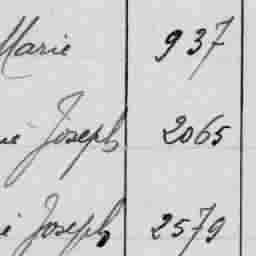 Marie 937
Joseph 2065
Joseph 2579